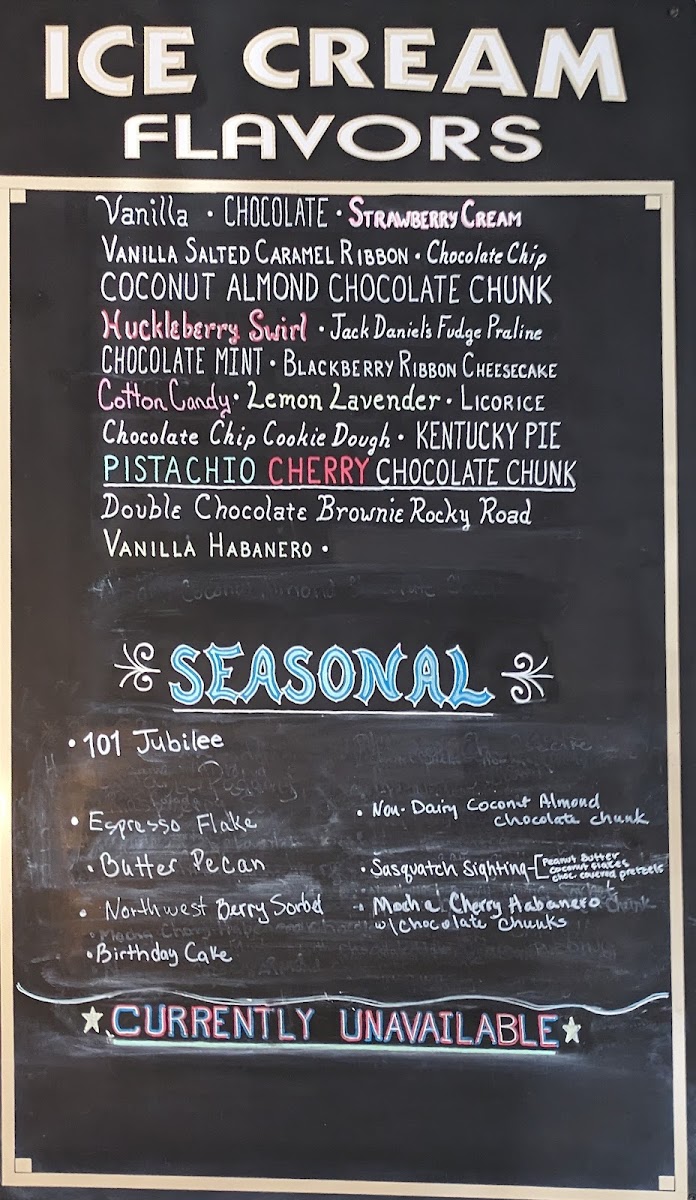 ICE CREAM
FLAVORS
Vanilla • CHOCOLATE • STRAWBERRY CREAM
VANILLA SALTED CARAMEL RIBBON • Chocolate Chip
COCONUT ALMOND CHOCOLATE CHUNK
Huckleberry Swirl • Jack Daniel's Fudge Praline
CHOCOLATE MINT • BLACKBERRY RIBBON CHEESECAKE
Cotton Candy • Lemon Lavender • LICORICE
Chocolate Chip Cookie Dough • KENTUCKY PIE
PISTACHIO CHERRY CHOCOLATE CHUNK
Double Chocolate Brownie Rocky Road
VANILLA HABANERO •
SEASONAL
• 101 Jubilee
• Espresso Flake
• Butter Pecan
• Northwest Berry Sorbet
• Birthday Cake
• Non-Dairy Coconut Almond
chocolate chunk
• Sasquatch Sighting-[Peanut Butter
coconut flakes
choc. covered pretzels
• Mocha Cherry Habanero
w/chocolate chunks
CURRENTLY UNAVAILABLE